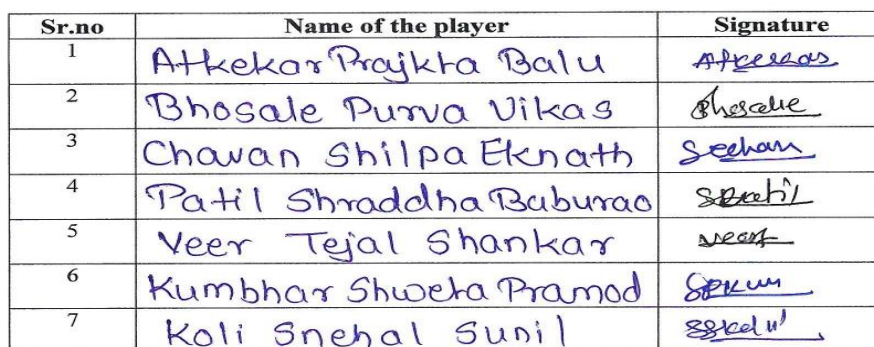 Sr.no Name of the player Signature
1 Atkekar Prajkta Balu Atkekar
2 Bhosale Purva Vikas Bhosale
3 Chavan Shilpa Eknath
4 Patil Shraddha Baburao SBPatil
5 Veer Tejal Shankar
6 Kumbhar Shweta Pramod
7 Koli Snehal Sunil